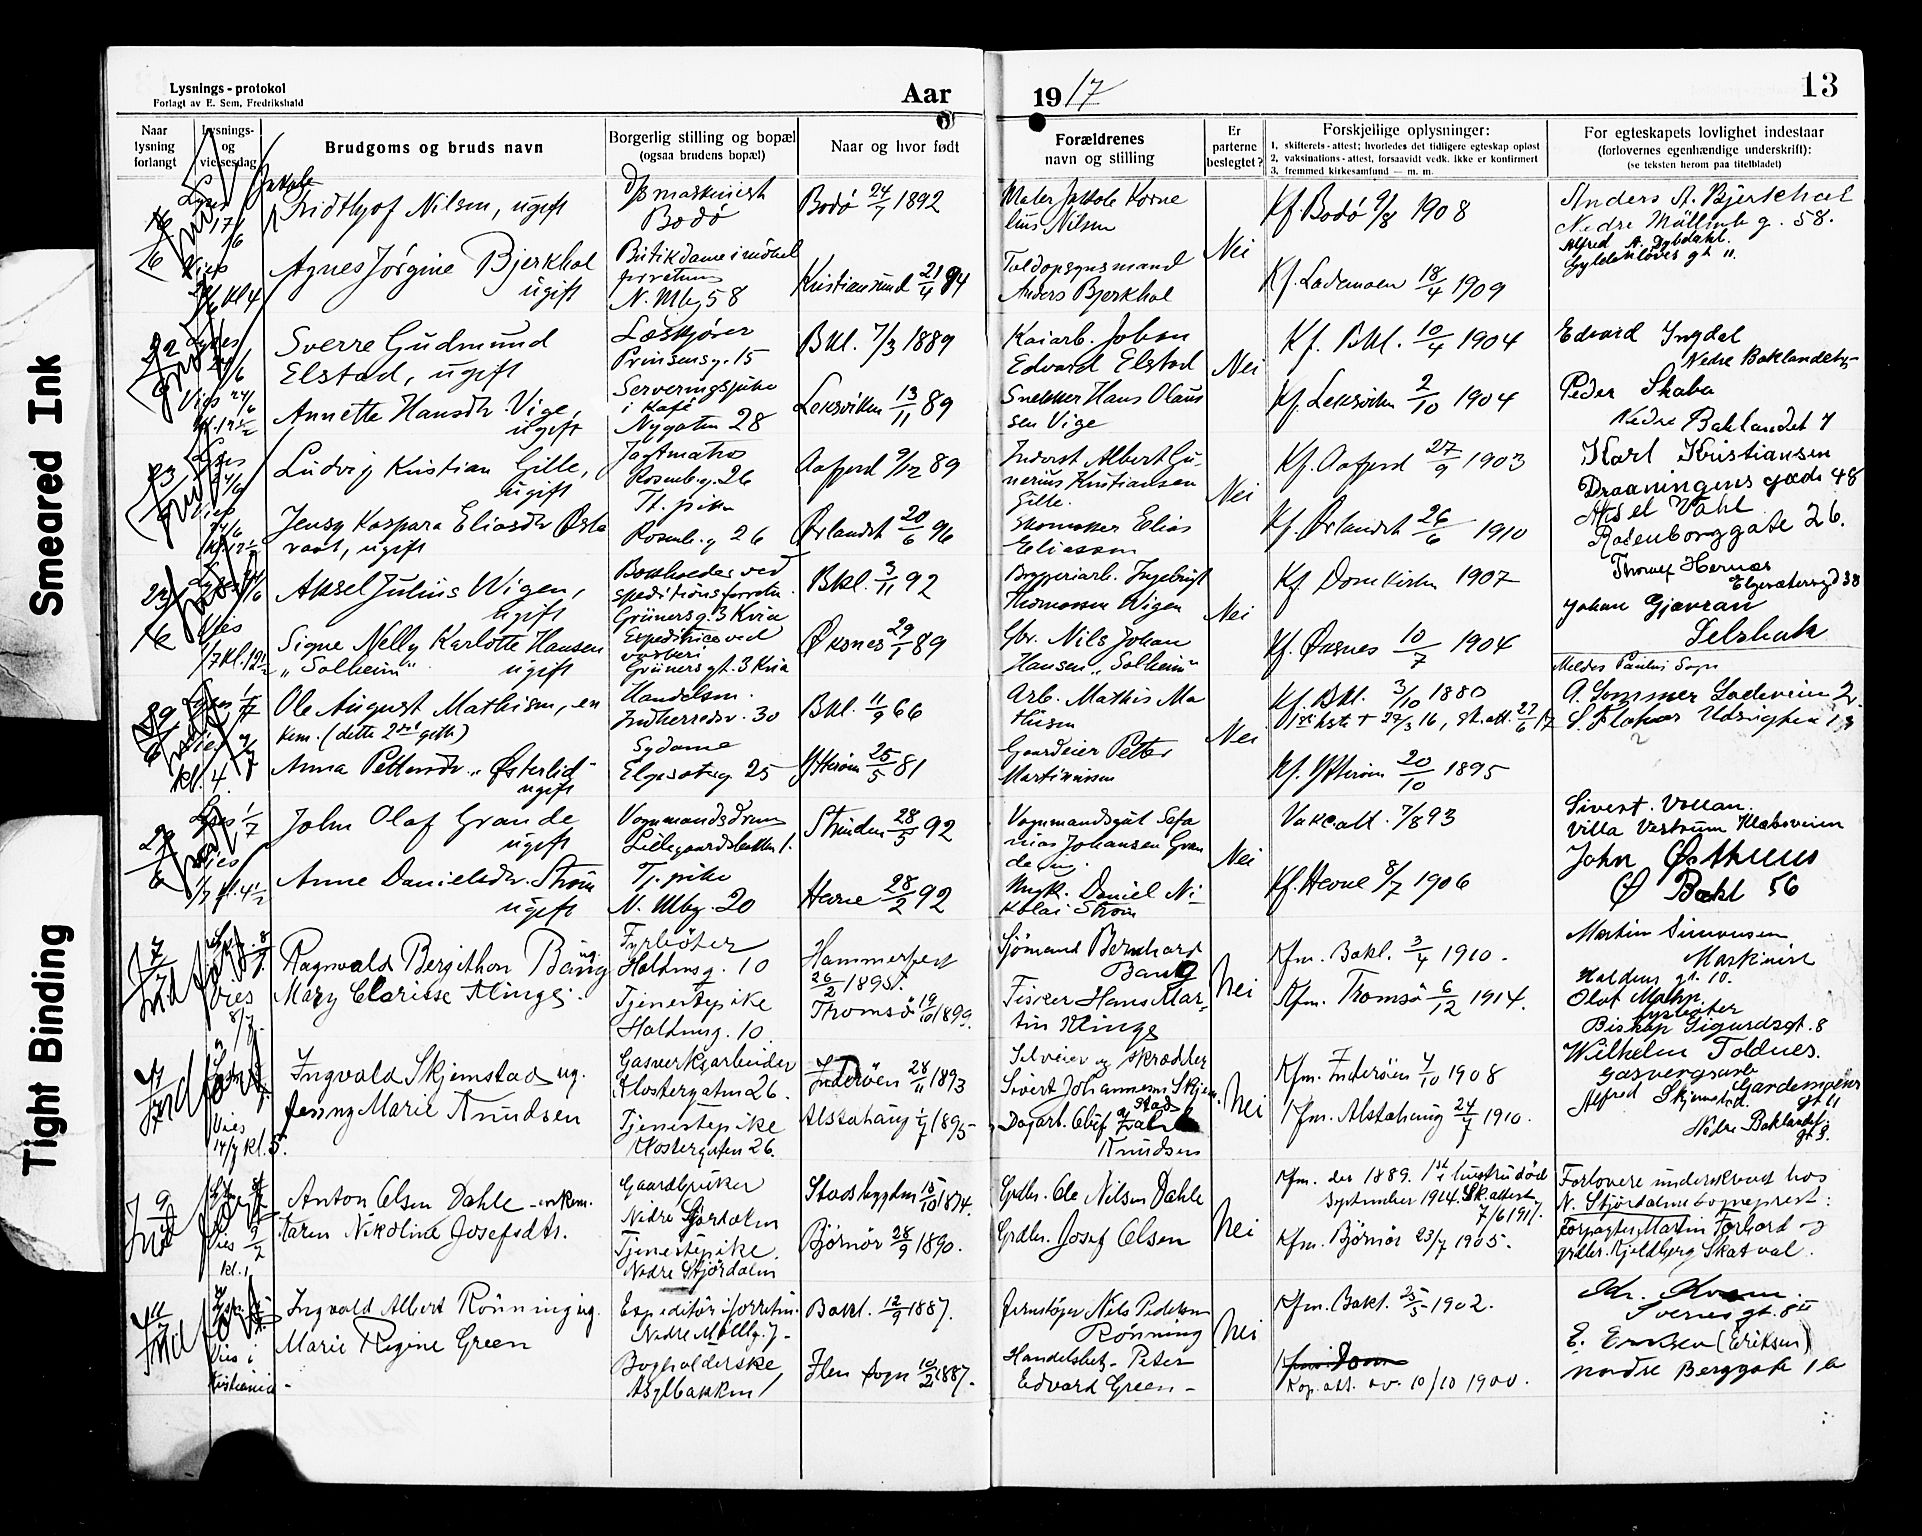 Smeared Ink
Tight Binding
Lysnings-protokol
Forlagt av E. Sem, Fredrikshald
Aar
1917
13
Naar lysning forlangt
Lysnings- og vielsesdag
Brudgoms og bruds navn
Borgerlig stilling og bopæl
(ogsaa brudens bopæl)
Naar og hvor født
Forældrenes
navn og stilling
Er parterne beslegtet?
Forskjellige oplysninger:
1. skifterets-attest; hvorledes det tidligere egteskap opløst
2. vaksinations-attest, forsaavidt vedk. ikke er konfirmert
3. fremmed kirkesamfund — m. m.
For egteskapets lovlighet indestaar
(forlovernes egenhændige underskrift):
(se teksten herom paa titelbladet)
Jakob
Fridthjof Nilsen, ugift
D/s maskinist
Bodø
Bodø 24/7 1892
Maler Jakob Korne
lius Nilsen
Nei
Kf. Bodø 9/8 1908
Anders A. Bjerkhol
Nedre Møllenb g. 58.
Alfred A. Dybdahl.
Gyldenløves gt 11.
Agnes Jørgine Bjerkhol
ugift
N. Mbg 58
Kristiansund 21/4 94
Toldopsynsmand
Anders Bjerkhol
Kf. Lademoen 18/4 1909
Sverre Gudmund
Elstad, ugift
Læskjører
Prinsensg. 15
Bkl. 7/3 1889
Kaiarb. Johan
Edvard Elstad
Nei
Kf. Bkl. 10/4 1904
Edvard Ingdal
Nedre Baklandet
Annette Hansdtr. Vige,
ugift
Serveringspike
i Kafé
Nygaten 28
Leksviken 13/11 89
Snekker Hans Olaus
sen Vige
Kf. Leksviken 2/10 1904
Peder Skaba
Nedre Baklandet 7
Ludvig Kristian Gille,
ugift
Jagtmatros
Rosenb.g. 26
Aafjord 9/12 89
Inderst Albert Gu-
nerius Kristiansen
Gille
Nei
Kf. Aafjord 27/9 1903
Karl Kristiansen
Draaningens gade 48
Jensy Kaspara Eliasdtr Østa
raat, ugift
Tj. pike
Rosenb.g 26
Ørlandet 20/6 96
Skomaker Elias
Eliassen
Kf. Ørlandet 26/6 1910
Aksel Vahl
Rosenborggate 26.
Aksel Julius Wigen,
ugift
Bokholder ved
speditionsforretn.
Grünersg. 3 Kria
Bkl. 3/11 92
Bryggeriarb. Ingebrigt
Thomassen Wigen
Nei
Kf Domkirken 1907
Thoralf Hernes
Elgesætersgd 38
Signe Nelly Karlotte Hansen
"Solheim" ugift
Expeditrice ved
Grünersgt. 3 Kria
Øksnes 29/1 89
Gbr. Nils Johan
Hansen "Solheim"
Kf. Øksnes 10/7 1904
Johan Gjævran
Selsbak
Ole August Mathisen, en
kem. (dette 2net gift)
Handelsm.
Indherredsv. 30
Bkl. 11/9 66
Arb. Mathis Ma
thisen
Nei
Kf. Bkl. 3/10 1880
A. Sommer Ladeveien 2
Anna Pettersdtr. "Østerlid"
ugift
Sydame
Elgesæterg. 25
Ytterøen 25/5 81
Gaardeier Petter
Martinussen
Kf. Ytterøen 20/10 1895
John Olaf Grande
ugift
Vognmandsdreng
Lillegaardsbakken 1.
Strinden 28/5 92
Nei
Vakc att. 7/8 93
Sivert. Vollan.
Villa Vestrum Klæbuveien
Anne Danielsdtr. Strøm
ugift
Tj. pike
N. Mbg. 20
Hevne 28/2 92
Daniel Ni-
kolai Strøm
Kf. Hevne 8/7 1906
John Østhuus
Ø Bakl 56
Ragnvald Bergithon Bang ug.
Fyrbøter
Holtrmsg. 10
Hammerfest
26/2 1895.
Sjømand Bernhard
Bang
Nei
Kfm. Bakl. 3/4 1910.
Martin Simonsen
Maskinist
Mary Clarisse Klinge.
Tjenestepike
Holtrmsg. 10.
Tromsø 19/10 1899.
Fisker Hans Mar-
tin Klinge
Kfm. Tromsø 6/12 1914.
Olof Malm,
fyrbøter
Biskop Sigurdsgt. 8
Ingvald Skjemstad ug.
Gasverksarbeider
Klostergaten 26.
Inderøen 28/11 1893
Selveier og skrædder
Sivert Johannesen Skjem-
stad
Nei
Kfm. Inderøen 4/10 1908
Wilhelm Toldnes.
Gasvergsarb
Gardemoens
gt 11
Jenny Marie Knudsen
Tjenestepike
Klostergaten 26.
Alstahaug 1/7 1895
Knudsen
Kfm. Alstahaug 24/7 1910.
Alfred Skjemstad
Nedre Baklandet
Anton Olsen Dahle - enkem.
Gaardbruker
Nedre Stjørdalen
Stadsbygden 15/10 1874.
Grdbr. Ole Nilsen Dahle
Nei
Kfm. der 1889. 1ste hustru død
September 1914. Sk.attest
7/6 1917.
Forlovere underskrevet hos
N. Stjørdalens sogneprest:
Karen Nikoline Josefsdtr.
Tjenestepike.
Nedre Stjørdalen
Bjørnør 28/9 1890.
Grdbr. Josef Olsen
Kfm. Bjørnør 23/7 1905.
Forpagter Martin Forbord og
grdbr. Kjeldberg Skatval.
Ingvald Albert Rønning ug.
Expeditør i forretn.
Nedre Møllbg. 7
Bakl. 12/9 1887.
Jernstøper Nils Pedersen
Rønning
Nei
Kfm. Bakl. 25/5 1902.
Sverresgt. 8 II
Marie Regine Green
Bogholderske
Asylbakken 1
Ilen sogn 10/2 1887.
Handelsbet. Peter
Edvard Green
Kop. att. av. 10/10 1900.
E. Eriksen (Eriksen)
Nordre Berggate 1 a
Vies i
Kristiania